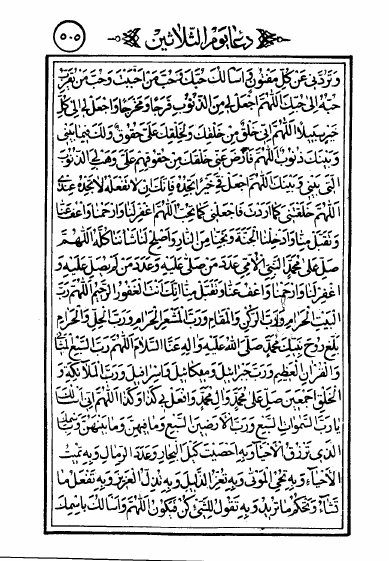 ٥٠٥
دعاء يوم الثلاثين
وترّدني عن كل مفتون واسالك حبك وحب من احببت وحب من يقرب
حبه الى حبك اللهم اجعل لي من الذنوب فرجا ومخرجا واجعل لي الى كل
خير سبيلا اللهم اني خلق من خلقك ولخلقك علي حقوق ولك فيما بيني
وبينك ذنوب اللهم فارض عني خلقك من حقوقهم علي وهب لي الذنوب
التي بيني وبينك اللهم اجعل في خيرا تجده فانك ان لا تفعله لا تجده عندي
اللهم خلقتني كما اردت فاجعلني كما تحب اللهم اغفر لنا وارحمنا واعف عنا
وتقبل منا وادخلنا الجنة ونجنا من النار واصلح لنا شاننا كله اللهم
صل على محمد النبي الامي عدد من صلى عليه وعدد من لم يصل عليه و
اغفر لنا وارحمنا واعف عنا وتقبل منا انك انت الغفور الرحيم اللهم رب
البيت الحرام ورب الركن والمقام ورب المشعر الحرام ورب الحل والحرام
بلغ روح نبيك محمد صلى الله عليه واله عنا السلام اللهم رب السبع المثاني
والقران العظيم ورب جبرائيل وميكائيل واسرافيل ورب الملائكة و
الخلق اجمعين صل على محمد وال محمد وافعل بي كذا وكذا اللهم اني اسالك
يا رب السموات السبع ورب الارضين السبع وما فيهن وما بينهن وباسمك
الذي ترزق الاحياء وبه احصيت كيل البحار وعدد الرمال وبه تميت
الاحياء وبه تحيي الموتى وبه تعز الذليل وبه تذل العزيز وبه تفعل ما
تشاء وتحكم ما تريد وبه تقول للشيء كن فيكون اللهم واسالك باسمك